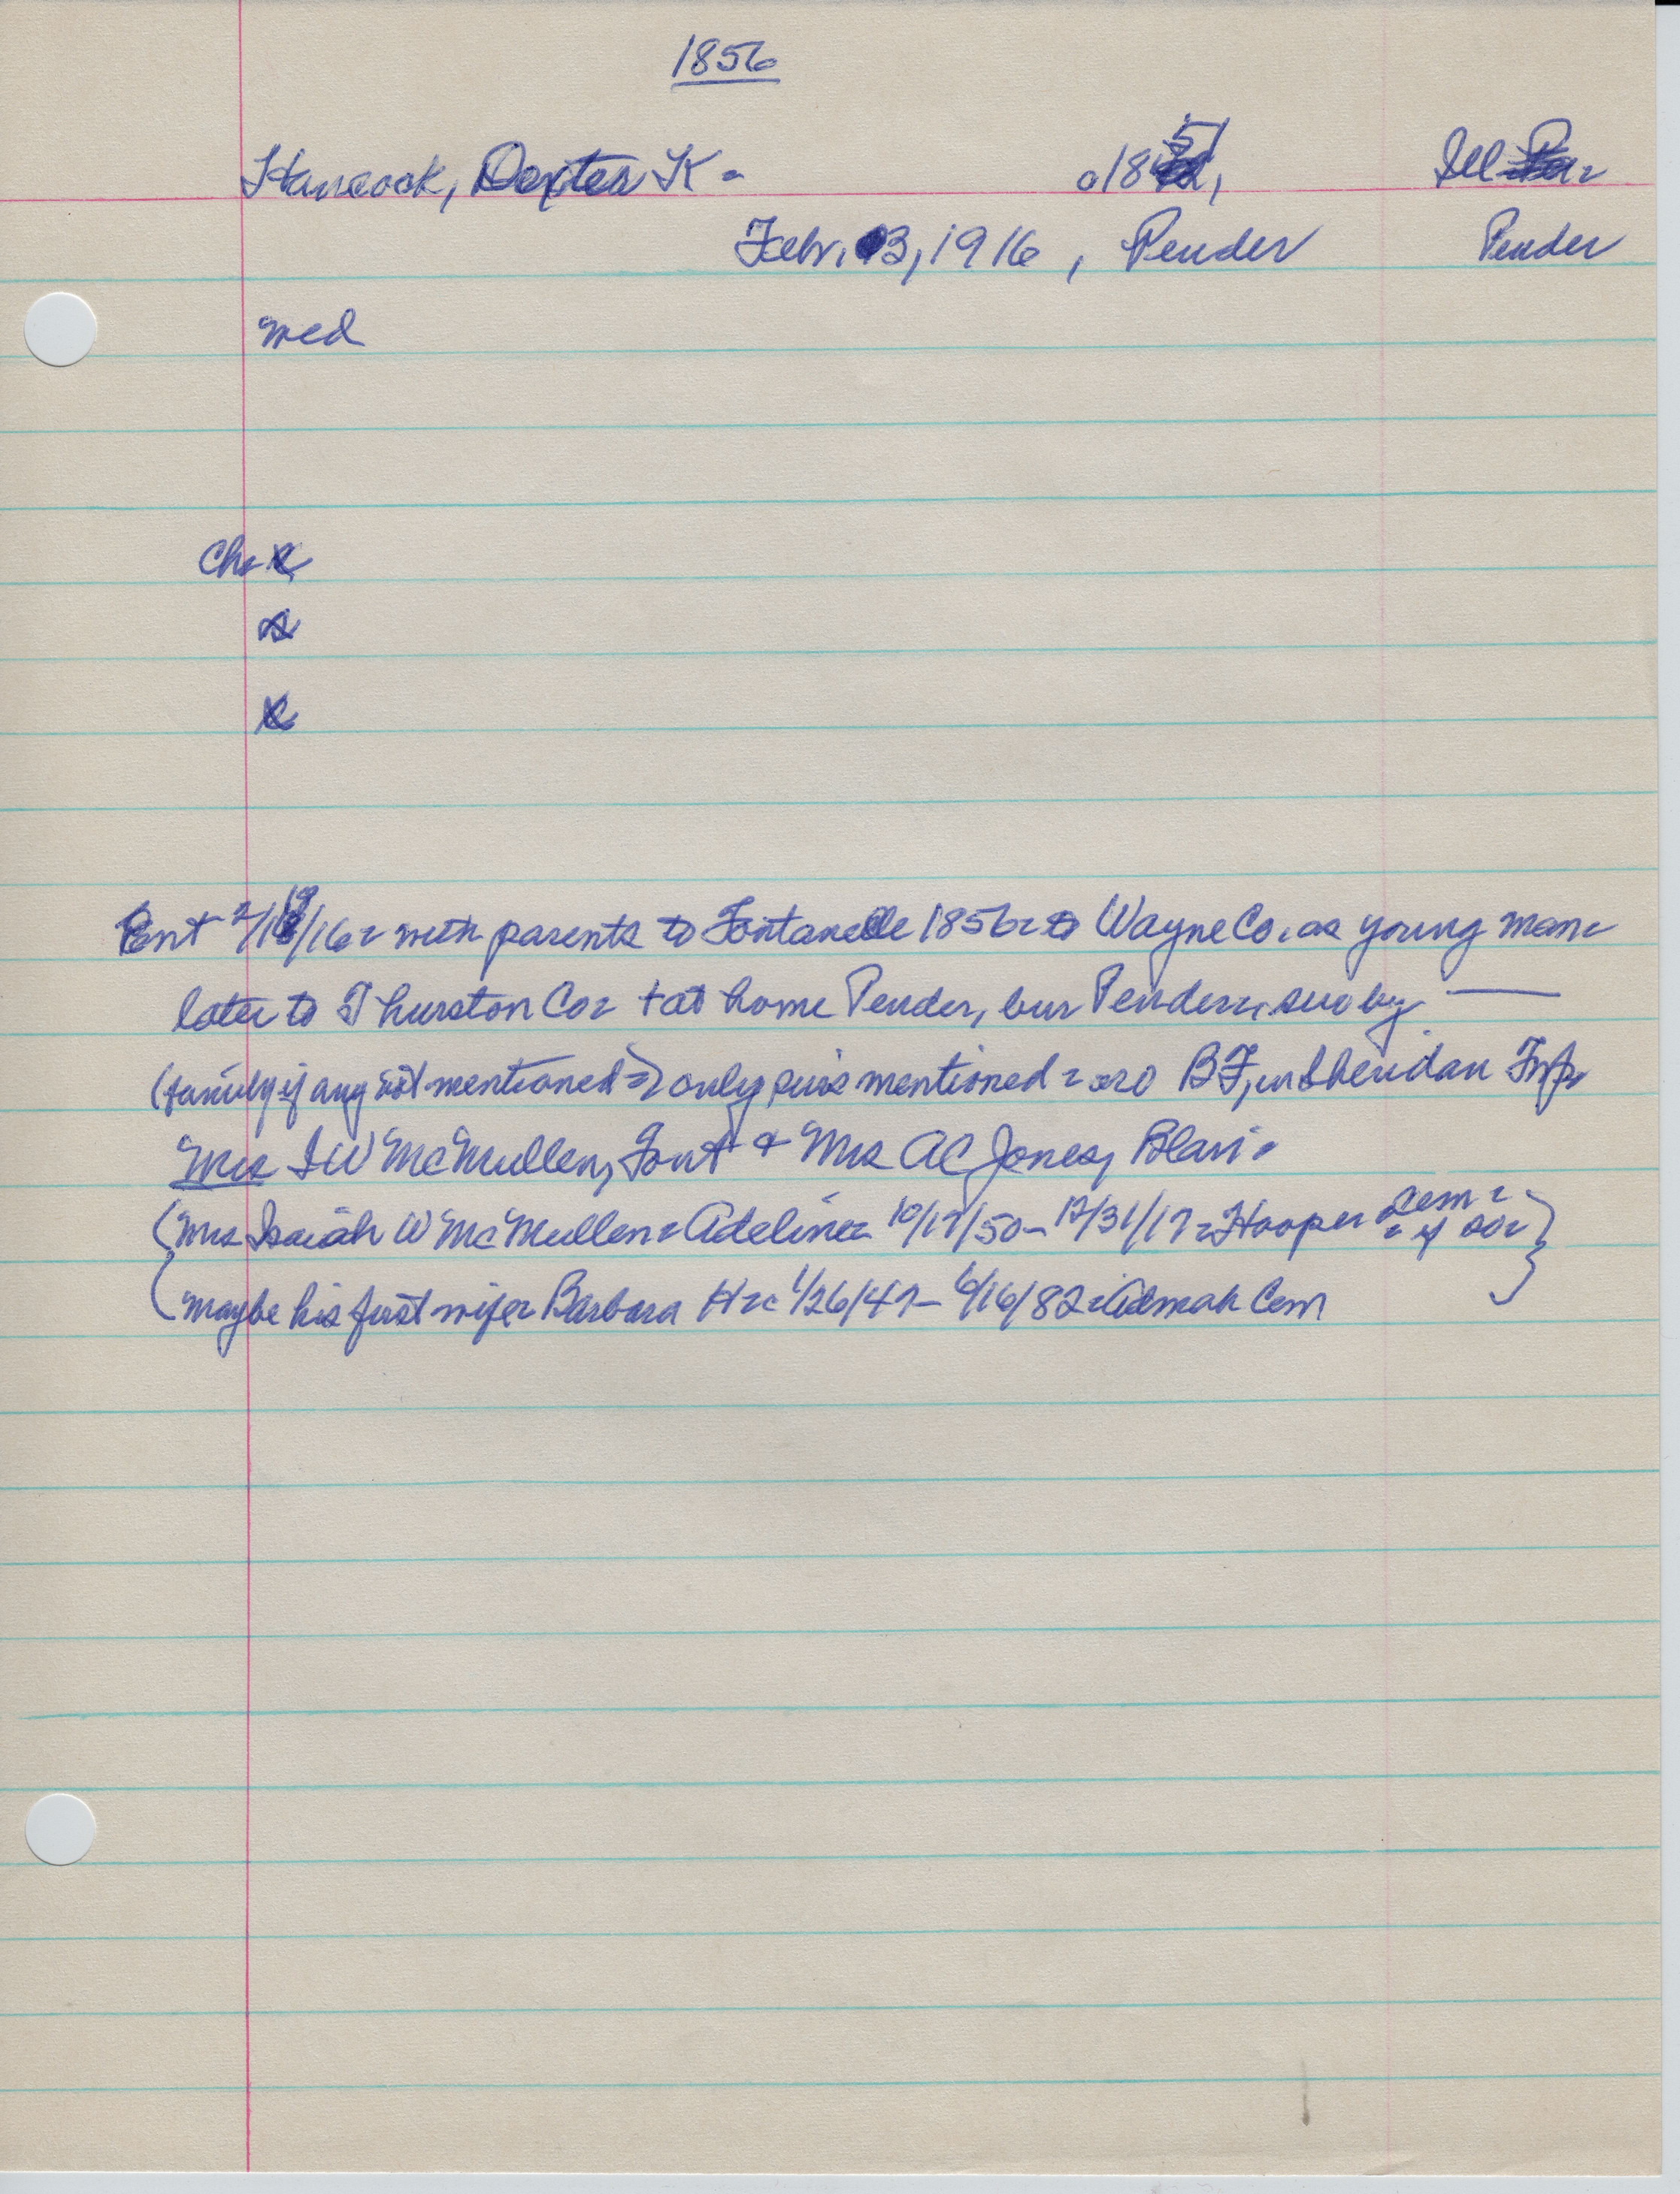 1856
Hancock, Dexter K - o 1851, Ill
Febr. 13, 1916, Pender Pender
med
Ch
Ent 2/18/16 with parents to Fontanelle 1856 to Wayne Co. as young man
later to Thurston Co + at home Pender, bur Pender, suv by ———
(family if any not mentioned) only suvs mentioned BF, in Sheridan
Mrs IW McMullen, Font + Mrs AC Jones, Blair.
(Mrs Isaiah W McMullen Adeline 10/17/50 - 12/31/17 Hooper Cem if so
maybe his first wife Barbara H 1/26/47 - 6/16/82 Admah Cem